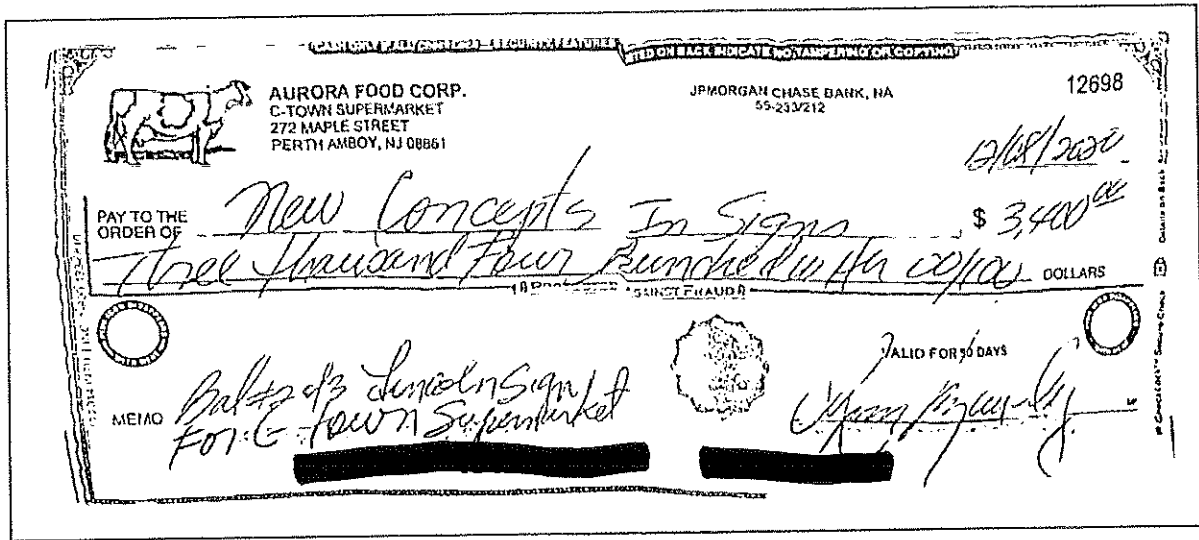 CASH ONLY IF ALL SECURITY FEATURES
LISTED ON BACK INDICATE NO TAMPERING OR COPYING
AURORA FOOD CORP.
C-TOWN SUPERMARKET
272 MAPLE STREET
PERTH AMBOY, NJ 08861
JPMORGAN CHASE BANK, NA
55-233/212
12698
PAY TO THE
ORDER OF New Concepts In Signs $ 3,400 00
Three Thousand Four Hundred 00/100 DOLLARS
AGAINST FRAUD
VALID FOR 90 DAYS
MEMO Bal #2 of 3 Lincoln Sign
For C-Town Supermarket
Details on Back